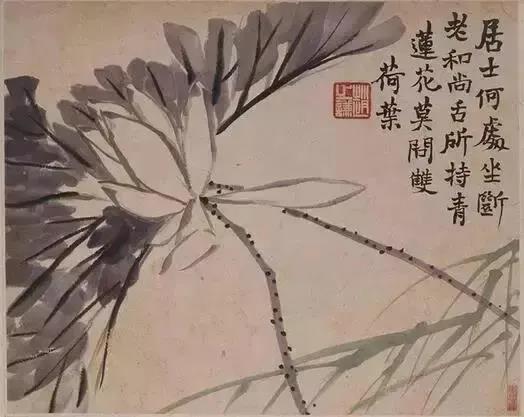 居士何處坐斷
老和尚舌所持青
蓮花莫問雙
荷葉